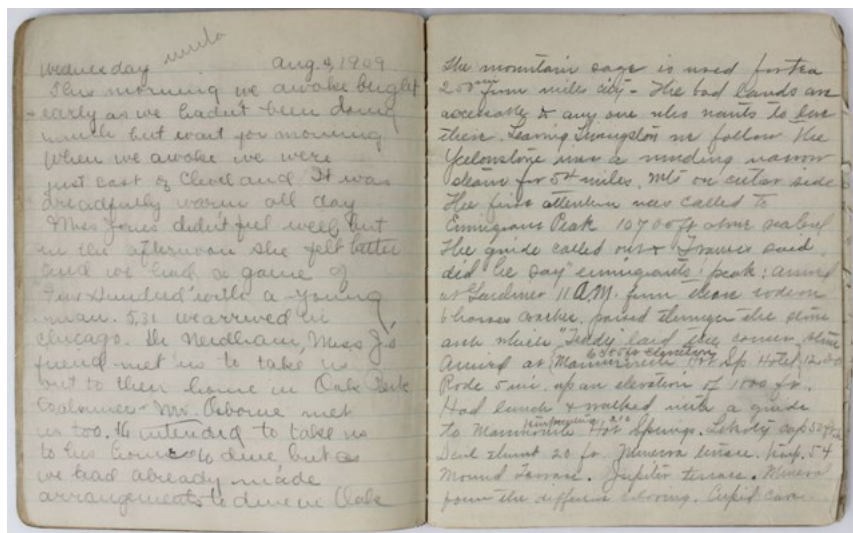 Wednesday Aug. 4, 1909.
This morning we awoke bright
early as we hadn't been doing
much but wait for morning
when we awoke we were
just east of Cleveland It was
dreadfully warm all day
Miss Jones didn't feel well but
in the afternoon she felt better
and we had a game of
Five Hundred with a young
man. 5.31 we arrived in
Chicago. Mr. Needham, Miss J's
friend met us to take us
out to their home in Oak Park
Mr. Osborne met
us too. He intended to take us
to his home to dine but as
we had already made
arrangements to dine in Oak
The mountain sage is used for tea
200 from miles city - The bad lands are
accessable to any one who wants to live
there. Leaving Livingston we follow the
Yelowstone a winding narrow
for 54 miles. Mts on either side
The first attention was called to
Emmigrant Peak 10700 ft above
The guide called out & Frances said
did he say "emmigrants" peak: arrived
at Gardiner 11 A.M. from there rode on
6 horses passed through the stone
arch which "Teddy" laid the corner stone
6300 ft elevation
Arrived at Mammouth Hot Sp Hotel 12.30
Rode 5 mi. up an elevation of 1000 ft.
Had lunch & walked with a guide
to Mammouth Hot Springs. Liberty cap 52 ft
20 ft. Minerva terrace. 54
Mound Terrace. Jupiter terrace. Mineral
form the different coloring. Cupid cave